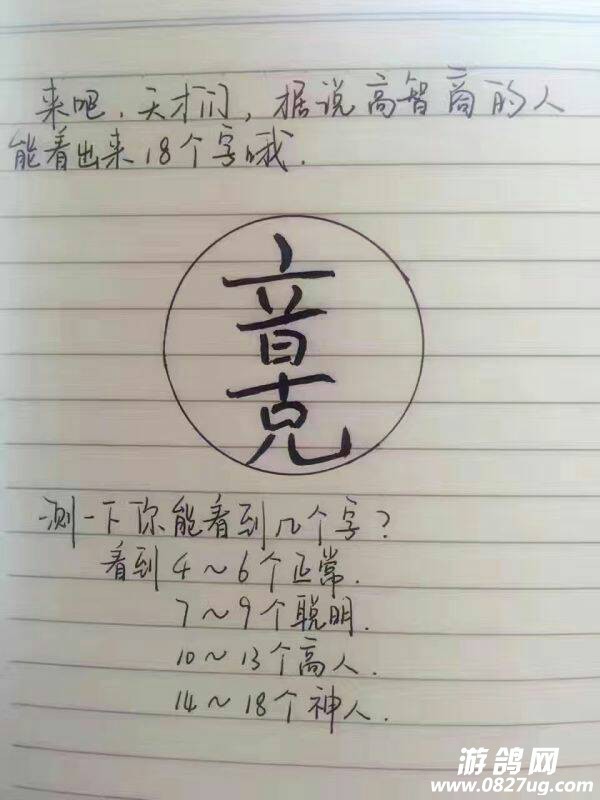 来吧，天才们，据说高智商的人
能看出来18个字哦.
音克
测一下你能看到几个字？
看到4～6个正常.
7～9个聪明.
10～13个高人.
14～18个神人.
游鸽网
www.0827ug.com